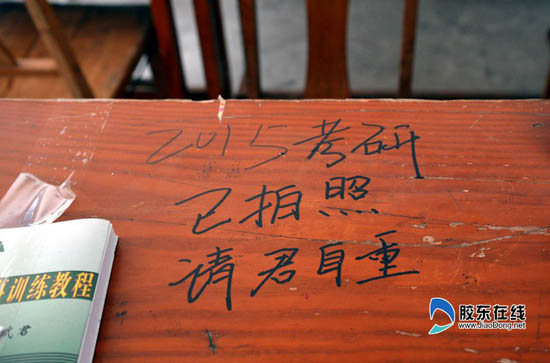 2015考研
已拍照
请君自重
训练教程
胶东在线
www.jiaodong.net